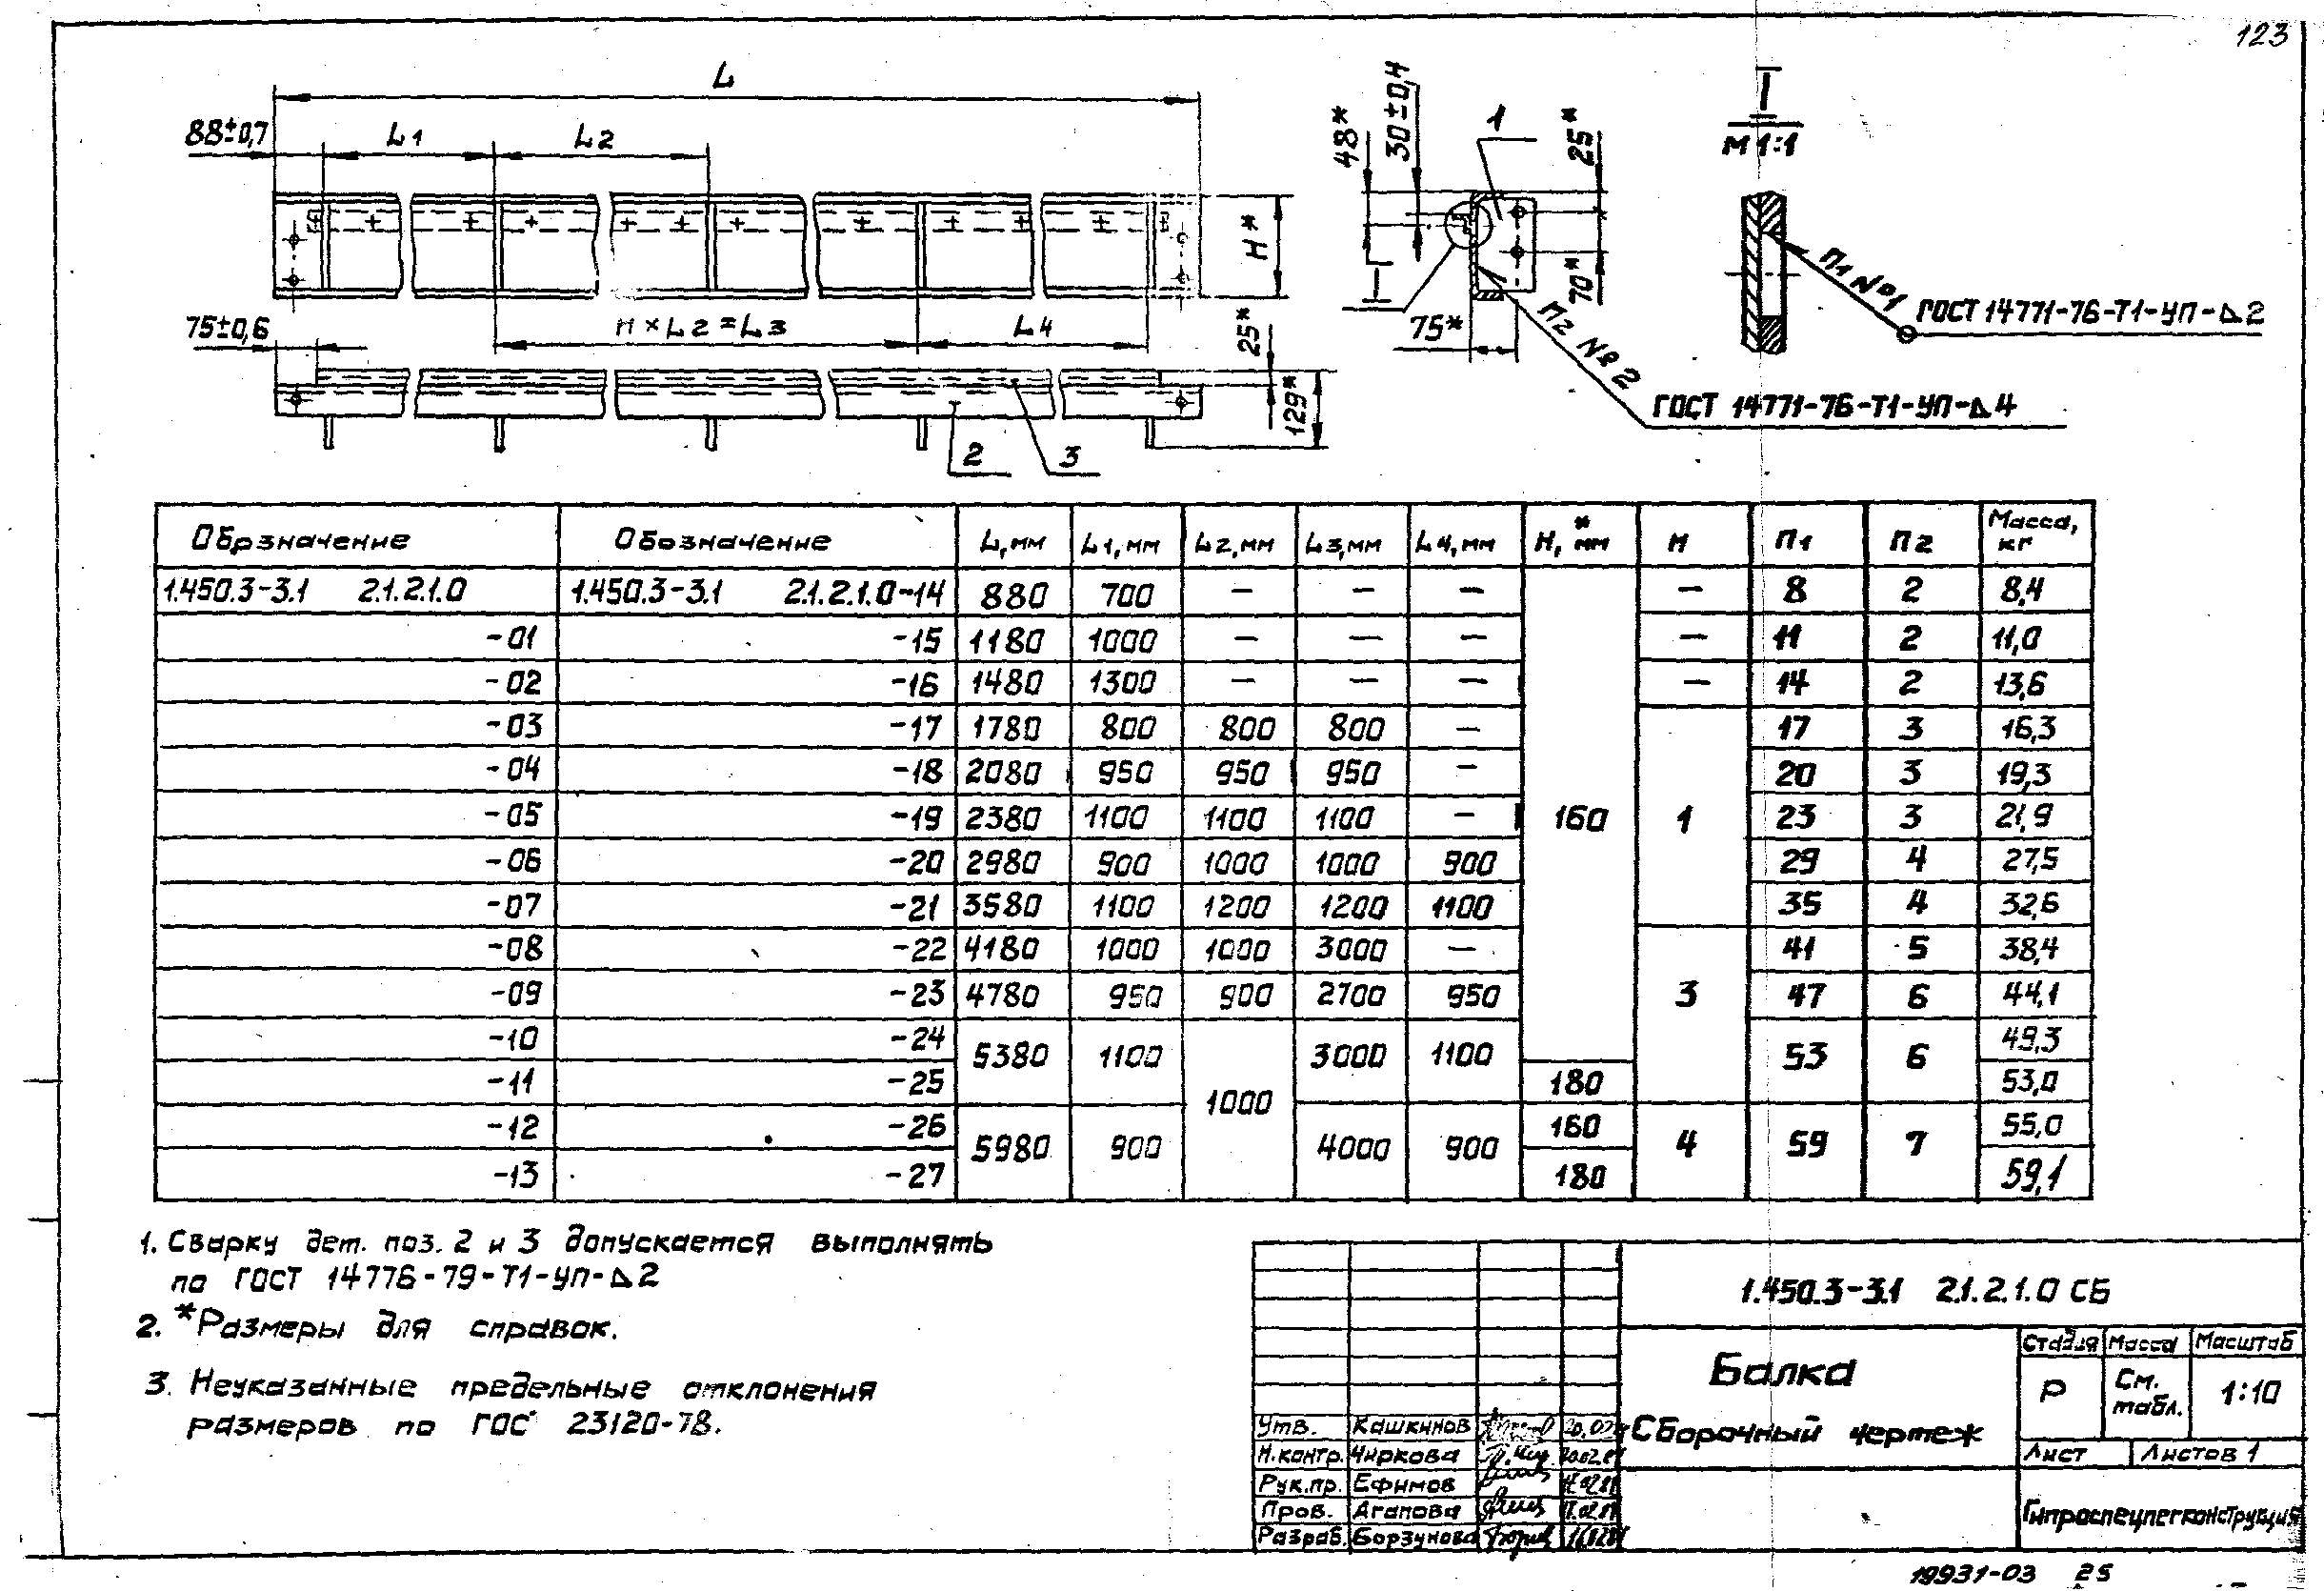 123
L
88±0,7
L1
L2
H*
75±0,6
n × L2 = L3
L4
25*
129*
2
3
48*
30±0,4
1
25*
70*
75*
I
I
М 1:1
П1 №1
ГОСТ 14771-76-Т1-УП-⊿2
П2 №2
ГОСТ 14771-76-Т1-УП-⊿4
Обрзначение Обозначение L,мм L1,мм L2,мм L3,мм L4,мм H,* мм n П1 П2 Масса, кг
1.450.3-3.1 2.1.2.1.0 1.450.3-3.1 2.1.2.1.0-14 880 700 — — — 160 — 8 2 8,4
-01 -15 1180 1000 — — — — 11 2 11,0
-02 -16 1480 1300 — — — — 14 2 13,6
-03 -17 1780 800 800 800 — 1 17 3 16,3
-04 -18 2080 950 950 950 — 20 3 19,3
-05 -19 2380 1100 1100 1100 — 23 3 21,9
-06 -20 2980 900 1000 1000 900 29 4 27,5
-07 -21 3580 1100 1200 1200 1100 35 4 32,6
-08 -22 4180 1000 1000 3000 — 3 41 5 38,4
-09 -23 4780 950 900 2700 950 47 6 44,1
-10 -24 5380 1100 1000 3000 1100 53 6 49,3
-11 -25 180 53,0
-12 -26 5980 900 4000 900 160 4 59 7 55,0
-13 -27 180 59,1
1. Сварку дет. поз. 2 и 3 допускается выполнять
по ГОСТ 14776-79-Т1-УП-⊿2
2. *Размеры для справок.
3. Неуказанные предельные отклонения
размеров по ГОС 23120-78.
1.450.3-3.1 2.1.2.1.0 СБ
Балка
Сборочный чертеж
Стадия Масса Масштаб
Р См. табл. 1:10
Лист Листов 1
Гипроспецлегконструкция
Утв. Кашкинов
Н.контр. Чиркова
Рук.пр. Ефимов
Пров. Агапова
Разраб. Борзунова
19931-03 25